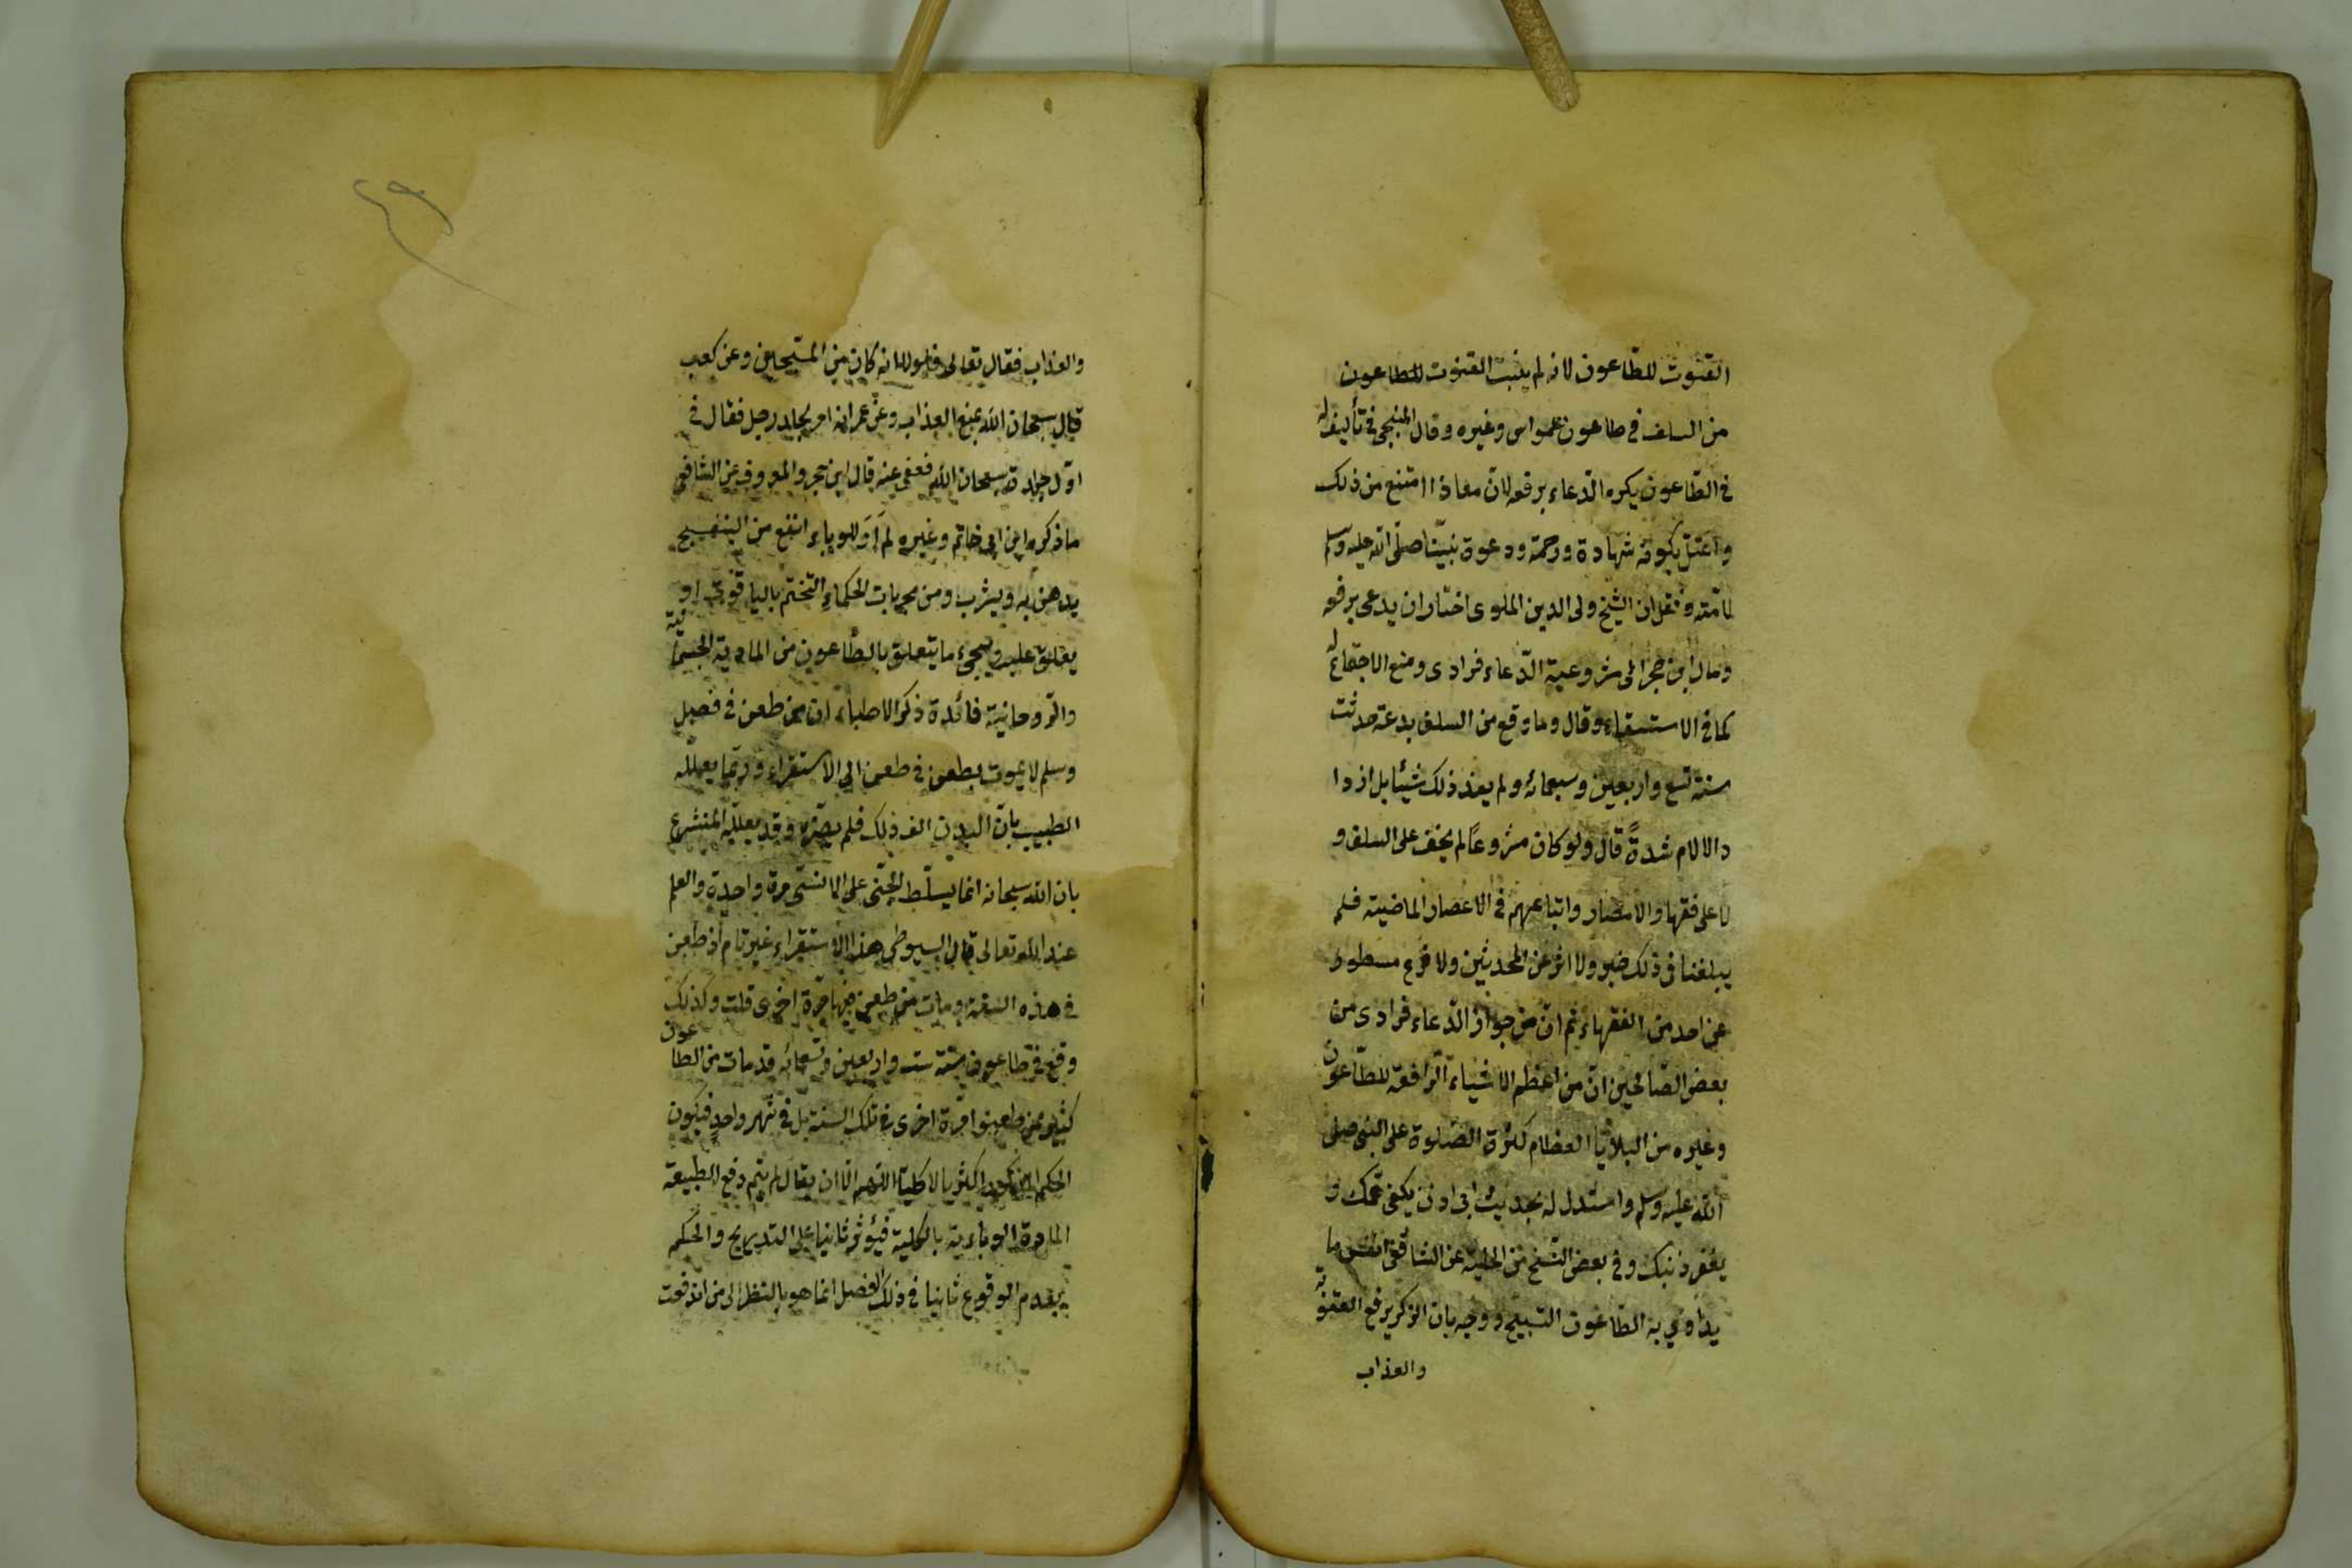 القنوت للطاعون لانه لم يثبت القنوت للطاعون
من السلف في طاعون عمواس وغيره وقال المنبجى في تأليف له
في الطاعون يكره الدعاء برفعه لان معاذا امتنع من ذلك
واعتل بكونه شهادة ورحمة ودعوة نبينا صلى الله عليه وسلم
لامته ونقل ان الشيخ ولى الدين الملوى اختار ان يدعى برفعه
ومال ابن حجر الى مشروعية الدعاء فرادى ومنع الاجتماع له
كما في الاستسقاء وقال وما وقع من السلف بدعة حدثت
سنة تسع واربعين وسبعمائة ولم يفد ذلك شيئا بل ازدا
د الالام شدة قال ولو كان مشروعا لم يخف على السلف و
لا على فقهاء الامصار واتباعهم في الاعصار الماضية فلم
يبلغنا في ذلك خبر ولا اثر عن المحدثين ولا فرع مسطور
عن احد من الفقهاء ثم ان من جواز الدعاء فرادى من
بعض الصالحين ان من اعظم الاشياء الرافعة للطاعون
وغيره من البلايا العظام كثرة الصلوة على النبى صلى
الله عليه وسلم واستدل له بحديث ابى اذن يكفى همك و
يغفر ذنبك وفي بعض النسخ من الحلية عن الشافعى انفس ما
يداوى به الطاعون التسبيح ووجه بان الذكر يرفع العقوبة
والعذاب
والعذاب فقال تعالى فلولا انه كان من المسبحين وعن كعب
قال سبحان الله يمنع العذاب وعن عمر انه امر بجلد رجل فقال في
اول جلدة سبحان الله فعفى عنه قال ابن حجر والمعروف عن الشافعى
ما ذكره ابن ابى حاتم وغيره لم ار للوباء انفع من البنفسج
يدهن به ويشرب ومن مجربات الحكماء التختم بالياقوت او
يعلق عليه وسيجئ ما يتعلق بالطاعون من المادية الجسمانية
والروحانية فائدة ذكر الاطباء ان من طعن في فصل
وسلم لا يموت بطعن في طعن الى الاستقراء وربما يعلله
الطبيب بان البدن الف ذلك فلم يضره وقد يعلله المتشرع
بان الله سبحانه انما يسلط الجنى على الانسى مرة واحدة والعلم
عند الله تعالى قال السيوطى هذا الاستقراء غير تام اذ طعن
في هذه السنة ومات من طعن فيها مرة اخرى قلت وكذلك
وقع في طاعون سنة ست واربعين وتسعمائة قد مات من الطاعون
كثير ممن طعنوا مرة اخرى في تلك السنة بل في شهر واحد فيكون
الحكم المذكور اكثريا لا كليا اللهم الا ان يقال لم يتم دفع الطبيعة
المادة الوبائية بالكلية فيؤثر ثانيا على التدريج والحكم
بعدم الوقوع ثانيا في ذلك الفصل انما هو بالنظر الى من اندفعت